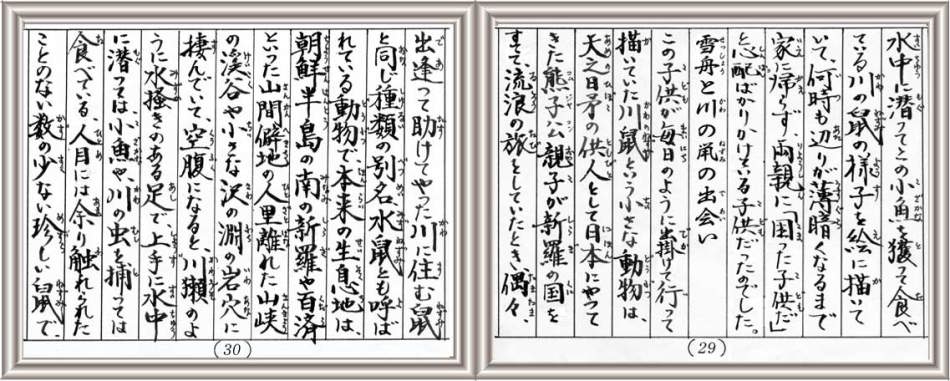 水中に潜ってとの小魚を獲って食べ
ている川の鼠の様子を絵に描いて
いて、何時も辺りが薄暗くなるまで
家に帰らず、両親に「困った子供だ」
と心配ばかりかけている子供だったのでした。
雪舟と川の鼠の出会い
この子供が毎日のように出掛けて行って
描いていた川鼠という小さな動物は、
天之日矛の供人として日本にやって
きた熊子公親子が新羅の国を
すてて、流浪の旅をしていたとき、偶々、
(29)
出逢って助けてやった川に住む鼠
と同じ種類の別名、水鼠とも呼ば
れている動物で、本来の生息地は、
朝鮮半島の南の新羅や百済
といった山間僻地の人里離れた山峡
の渓谷や小さな沢の淵の岩穴に
棲んでいて、空腹になると、川獺のよ
うに水掻きのある足で、上手に水中
に潜っては、小魚や、川の虫を捕っては
食べている、人目には余り触れられた
ことのない数の少ない珍しい鼠で、
(30)